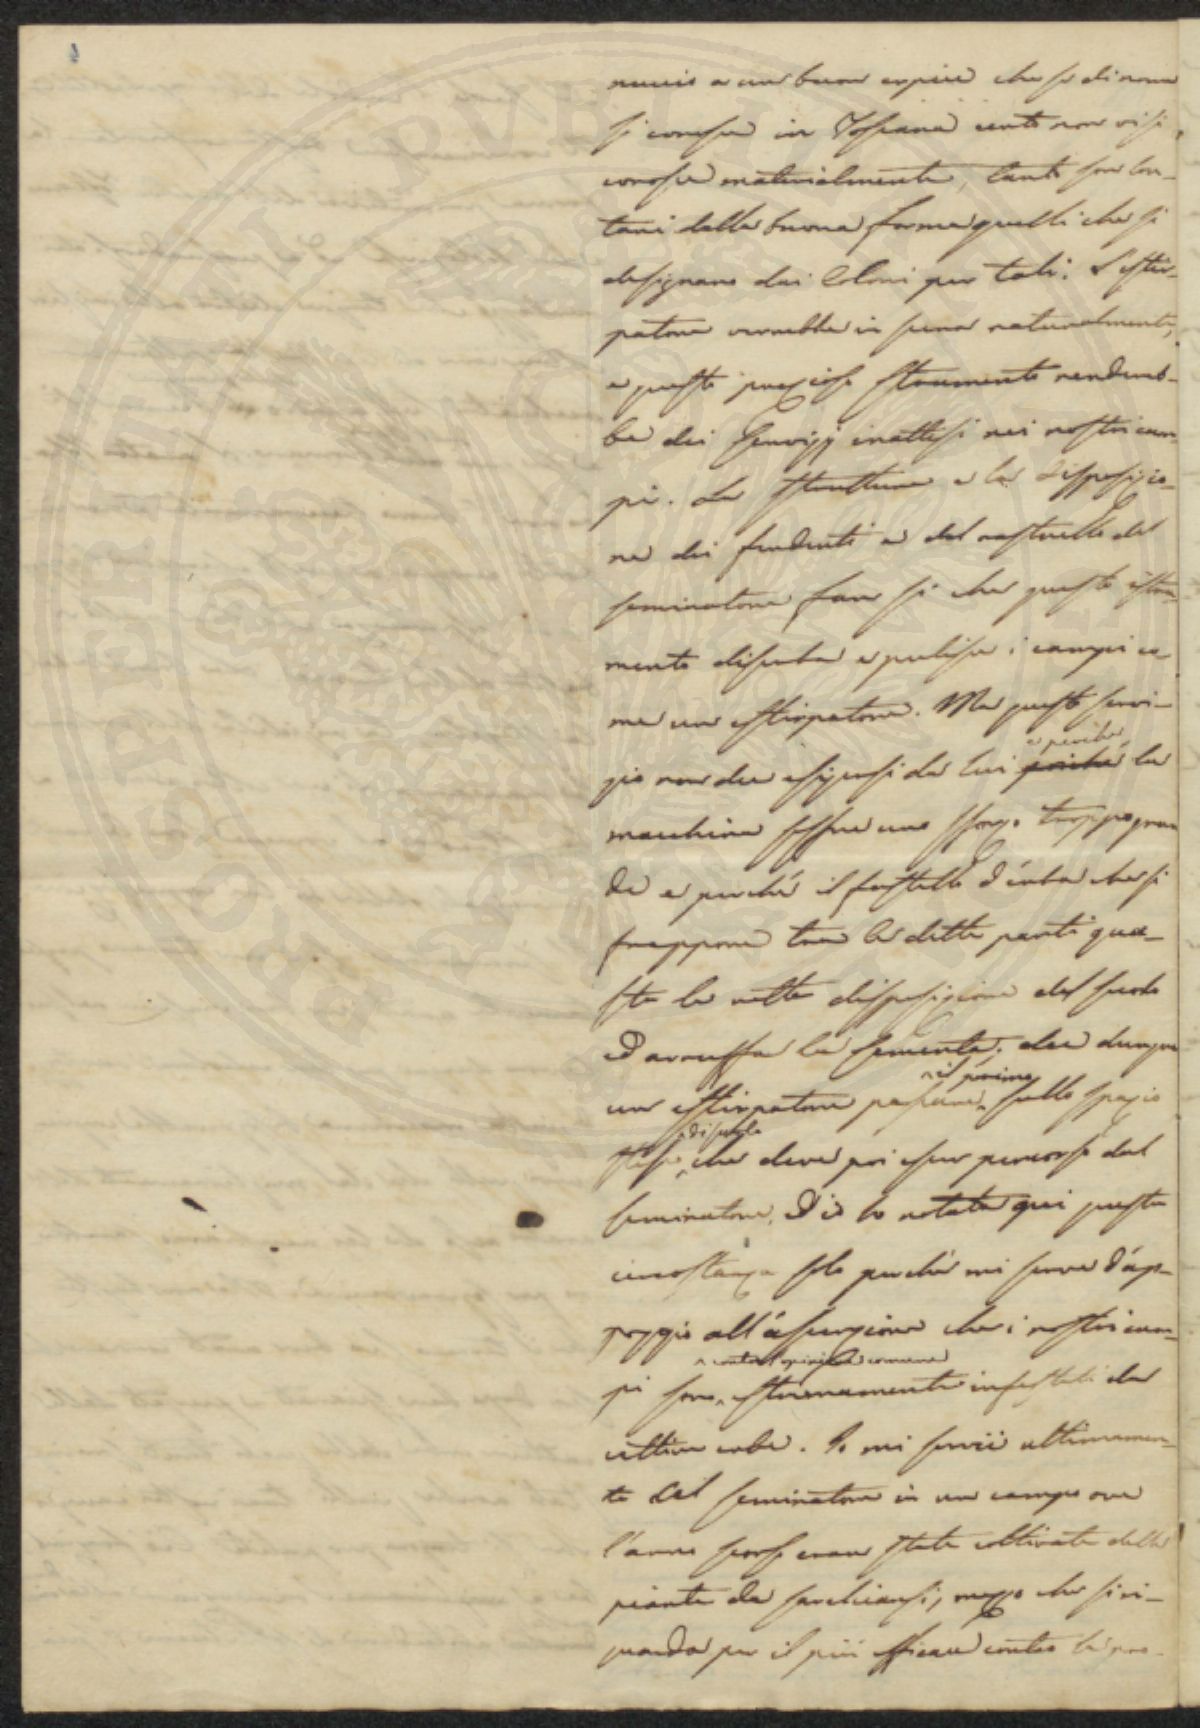 nuncio a un buon erpice che se di nome
si conosce in Toscana certo non vi si
conosce materialmente, tanto son lon-
tani dalla buona forma quelli che si
designano dai Coloni per tali. L'estir-
patore verrebbe in scena naturalmente,
e questo prezioso strumento rendereb-
be dei servigj inattesi nei nostri cam-
pi. La struttura e la disposizio-
ne dei fendenti e del rastrello del
seminatore fan sì che questo istru-
mento diserba e pulisce i campi co-
me un estirpatore. Ma questo servi-
e perché
gio non dee esigersi da lui perché la
macchina soffre uno sforzo troppo gran
de e perché il fastello d'erba che si
frappone tra le dette parti gua-
sta la retta disposizione del suolo
ed arruffa la sementa. dee dunque
il primo
un estirpatore passare sullo spazio
di suolo
stesso che deve poi esser percorso dal
seminatore. Ed io ho notata qui questa
circostanza solo perché mi serve d'ap-
poggio all'asserzione che i nostri cam-
contro l'opinione comune
pi sono estremamente infestati da
cattive erbe. Io mi servii ultimamen-
te del seminatore in un campo ove
l'anno scorso eran state coltivate delle
piante da sarchiarsi, mezzo che si ri-
guarda per il più efficace contro le